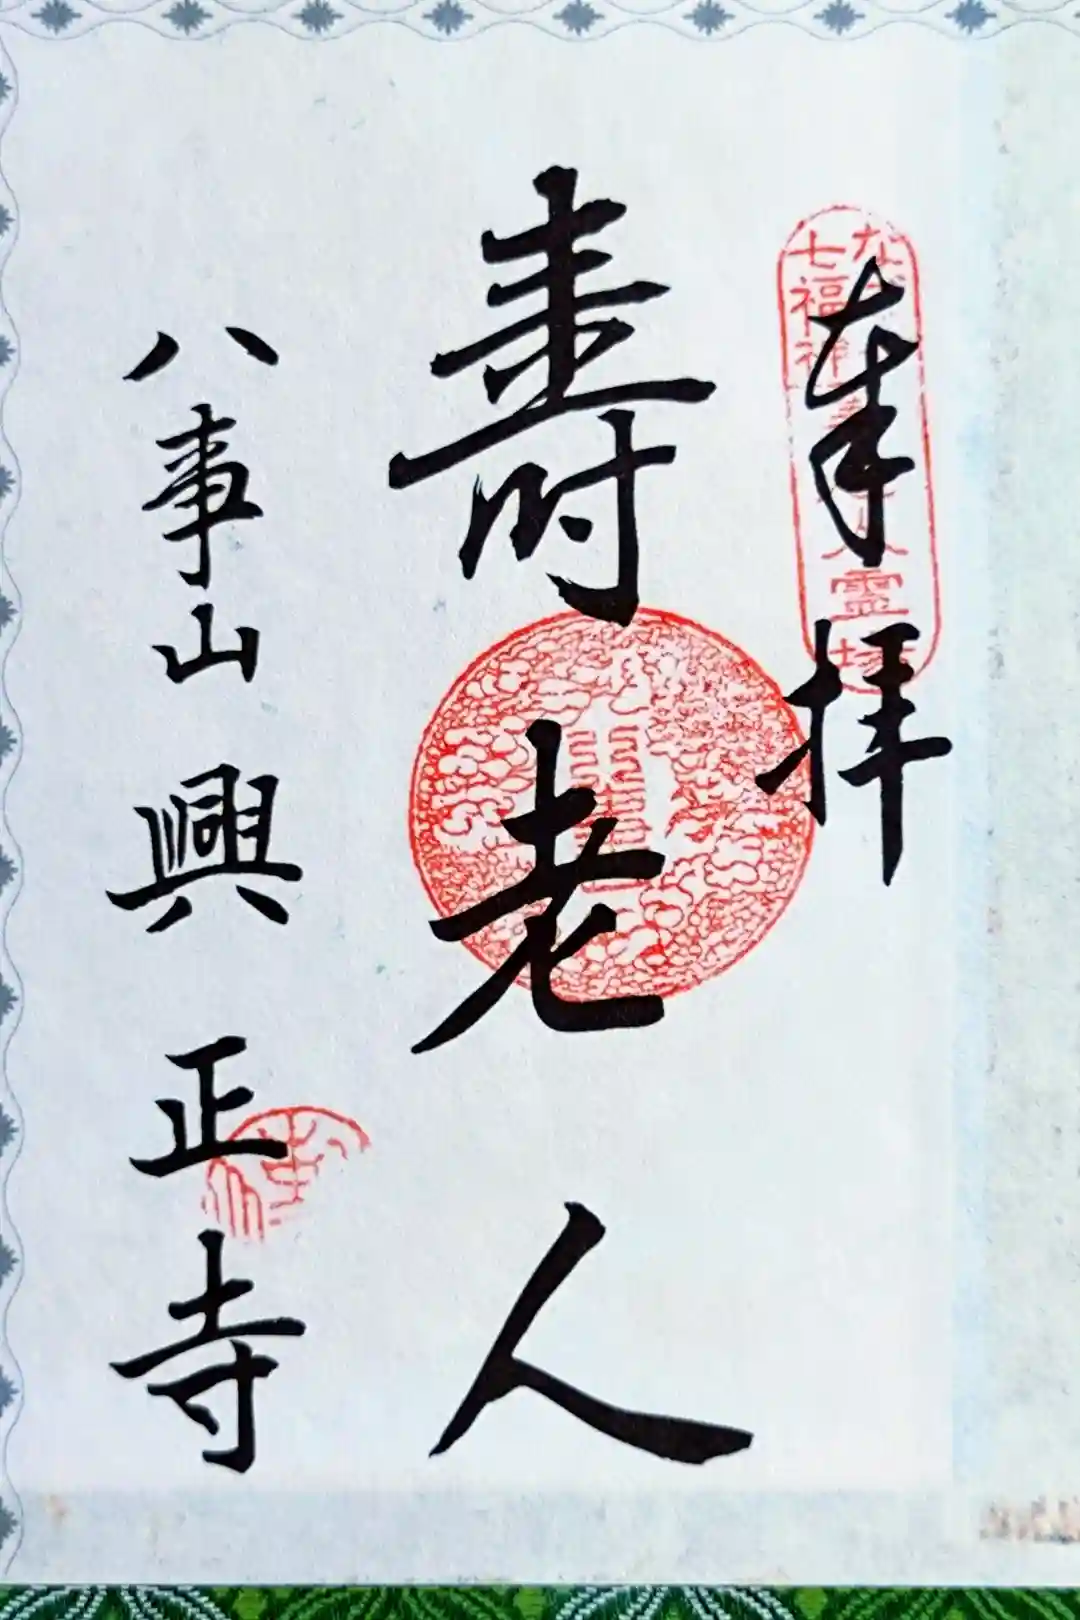 奉拝
七福神
霊
寿老人
八事山興正寺